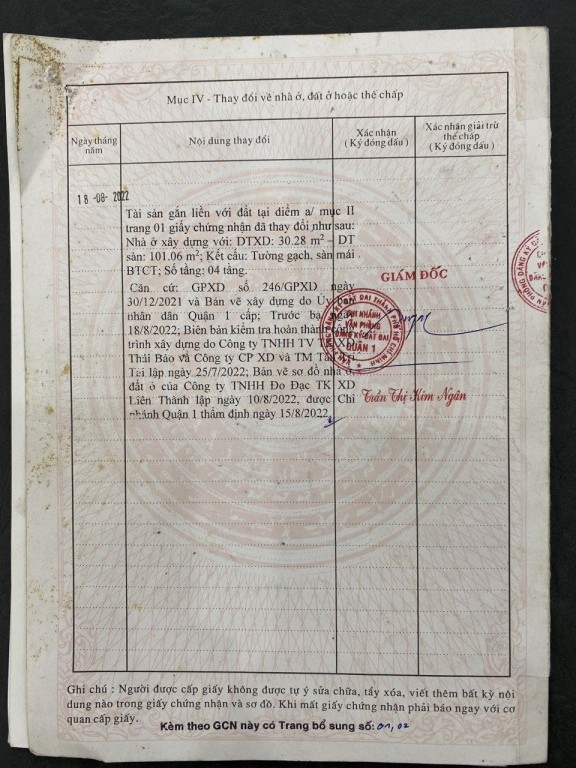 Mục IV - Thay đổi về nhà ở, đất ở hoặc thế chấp
Ngày tháng năm
Nội dung thay đổi
Xác nhận (Ký đóng dấu)
Xác nhận giải trừ thế chấp (Ký đóng dấu)
18-08-2022
Tài sản gắn liền với đất tại điểm a/ mục II
trang 01 giấy chứng nhận đã thay đổi như sau:
Nhà ở xây dựng với: DTXD: 30.28 m² – DT
sàn: 101.06 m²; Kết cấu: Tường gạch, sàn mái
BTCT; Số tầng: 04 tầng.
Căn cứ: GPXD số 246/GPXD ngày
30/12/2021 và Bản vẽ xây dựng do Ủy ban
nhân dân Quận 1 cấp; Trước bạ ngày
18/8/2022; Biên bản kiểm tra hoàn thành công
trình xây dựng do Công ty TNHH TV TK XD
Thái Bảo và Công ty CP XD và TM Tấn
Tài lập ngày 25/7/2022; Bản vẽ sơ đồ nhà ở,
đất ở của Công ty TNHH Đo Đạc TK XD
Liên Thành lập ngày 10/8/2022, được Chi
nhánh Quận 1 thẩm định ngày 15/8/2022.
GIÁM ĐỐC
CHI NHÁNH
VĂN PHÒNG
ĐĂNG KÝ ĐẤT ĐAI
QUẬN 1
Trần Thị Kim Ngân
Ghi chú : Người được cấp giấy không được tự ý sửa chữa, tẩy xóa, viết thêm bất kỳ nội
dung nào trong giấy chứng nhận và sơ đồ. Khi mất giấy chứng nhận phải báo ngay với cơ
quan cấp giấy.
Kèm theo GCN này có Trang bổ sung số: 01, 02